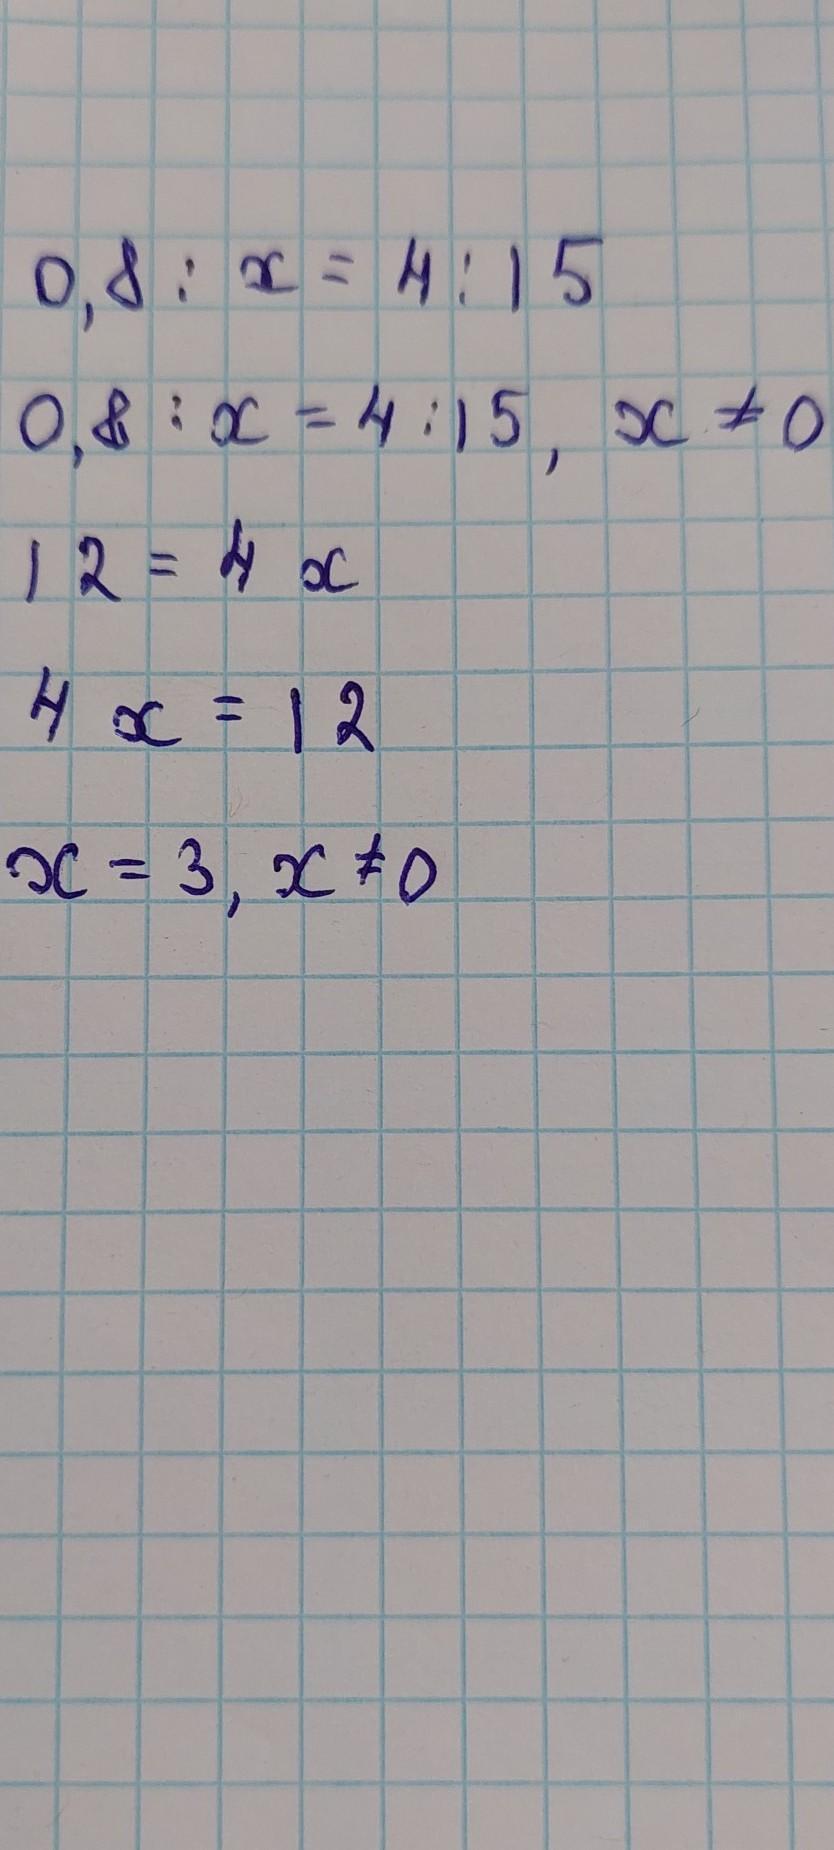 0,8 : x = 4 : 15
0,8 : x = 4 : 15, x ≠ 0
12 = 4 x
4 x = 12
x = 3, x ≠ 0